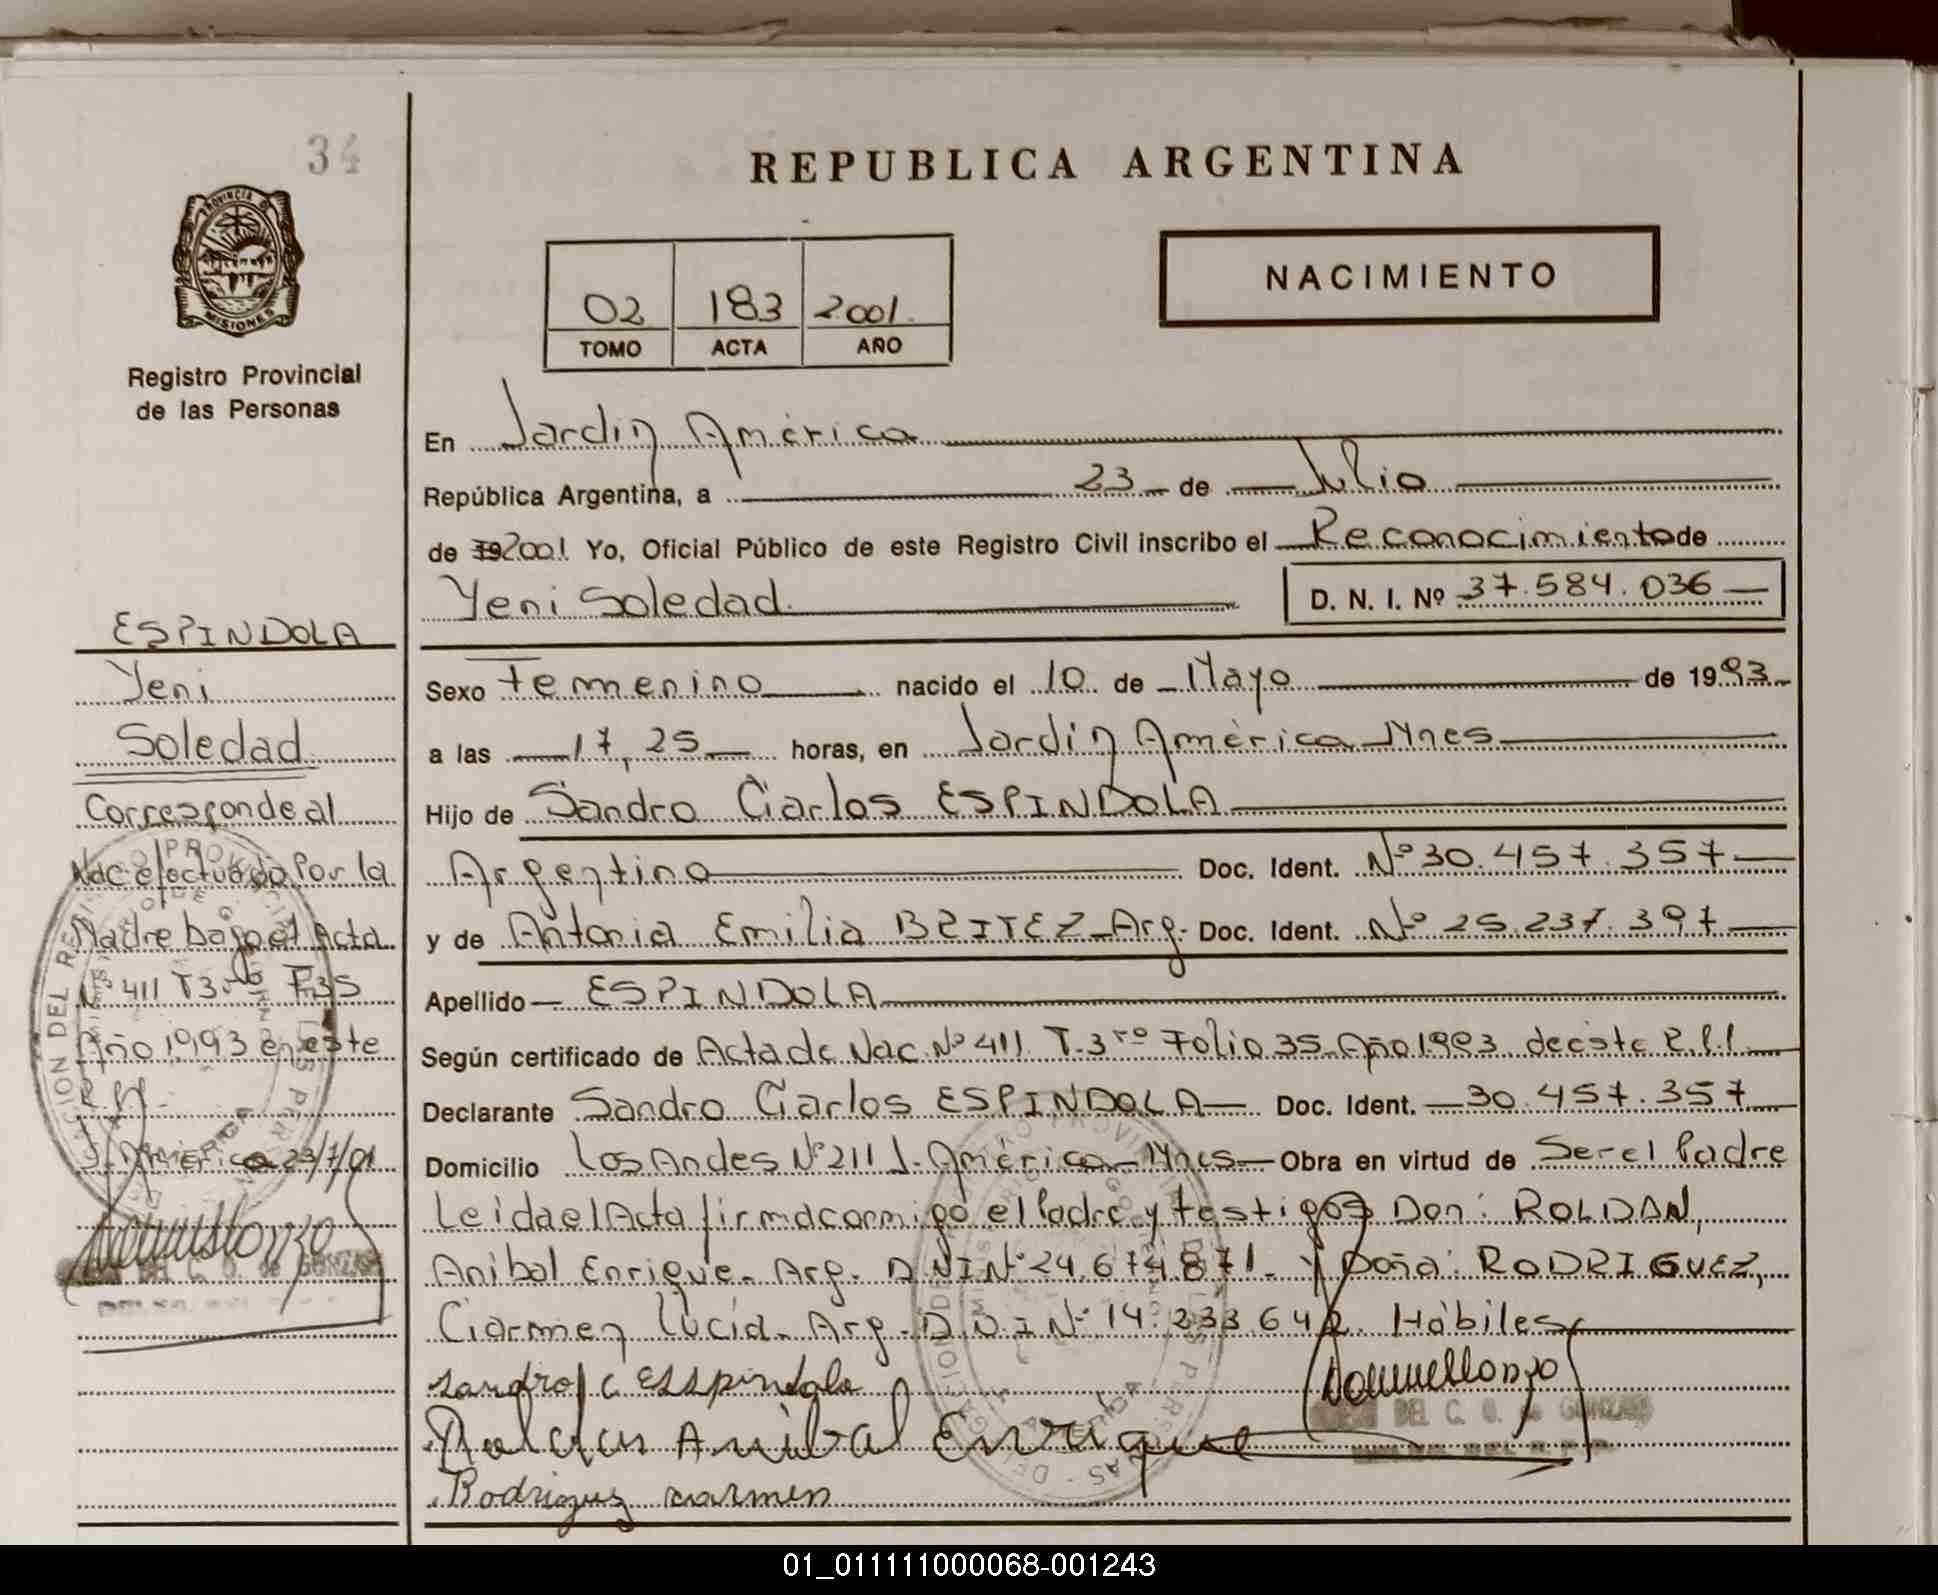 34
REPUBLICA ARGENTINA
PROVINCIA DE
MISIONES
Registro Provincial
de las Personas
02 183 2001.
TOMO ACTA AÑO
NACIMIENTO
En Jardín América
República Argentina, a 23 de Julio
de 192001 Yo, Oficial Público de este Registro Civil inscribo el Reconocimiento de
Yeni Soledad. D. N. I. Nº 37.584.036
Sexo Femenino nacido el 10 de Mayo de 1993
a las 17,25 horas, en Jardín América Mnes
Hijo de Sandro Carlos ESPINDOLA
Argentino Doc. Ident. Nº 30.457.357
y de Antonia Emilia BRITEZ Arg. Doc. Ident. Nº 25.237.397
Apellido ESPINDOLA
Según certificado de Acta de Nac. Nº 411 T. 3ro Folio 35 Año 1993 de este
Declarante Sandro Carlos ESPINDOLA Doc. Ident. 30.457.357
Domicilio Los Andes Nº 211 J. América Mnes Obra en virtud de Ser el Padre
Leida el Acta firma conmigo el Padre y testigos Don: ROLDAN,
Anibal Enrique. Arg. DNI Nº 24.674.871. Y Doña: RODRIGUEZ,
Carmen Lucía. Arg. D.N.I Nº 14.233.642. Hábiles
Sandro C Esspindola
Anibal Enrique
Rodriguez carmen
DEL C. G. de
ESPINDOLA
Yeni
Soledad
Corresponde al
Nac efectuado Por la
Madre bajo el Acta
Nº 411 T 3ro F35
Año 1993 en este
J. América 23/7/01
DEL C. G. de
01_011111000068-001243